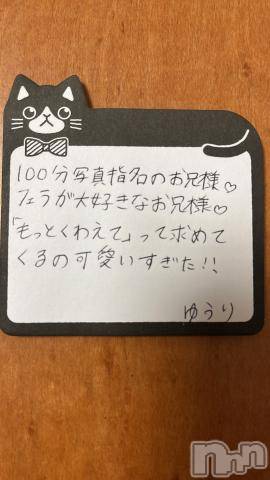 100分写真指名のお兄様♡
フェラが大好きなお兄様♡
「もっとくわえて」って求めて
くるの可愛いすぎた!!
ゆうり
Nnn